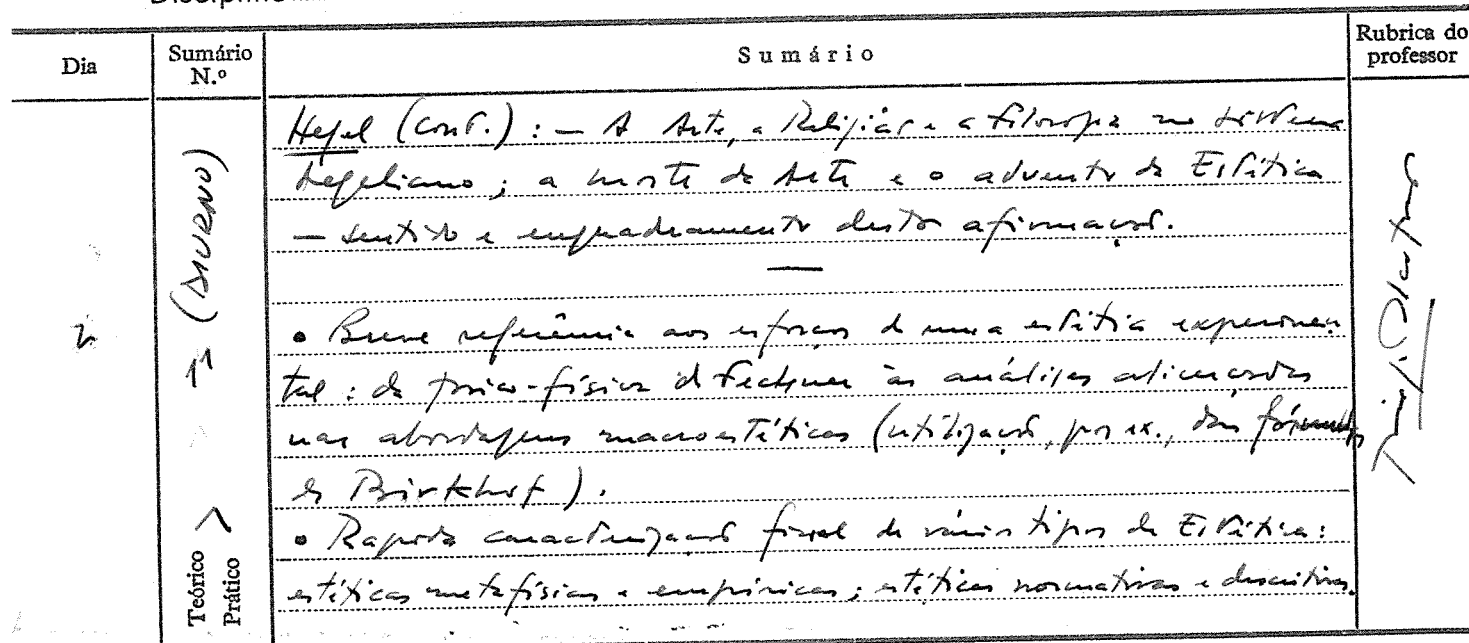 Dia
Sumário N.º
Sumário
Rubrica do professor
(DIURNO)
Teórico
Prático
Hegel (cont.): — A Arte, a Religião e a Filosofia no sistema
hegeliano; a morte da Arte e o advento da Estética
— sentido e enquadramento desta afirmação.
• Breve referência aos esforços de uma estética experimen-
tal: da psico-física de Fechner às análises
nas abordagens macroestéticas (utilização, por ex., das fórmulas
de Birkhof).
• Rápida caracterização final de vários tipos de Estética:
estéticas metafísicas e empíricas; estéticas normativas e descritivas.